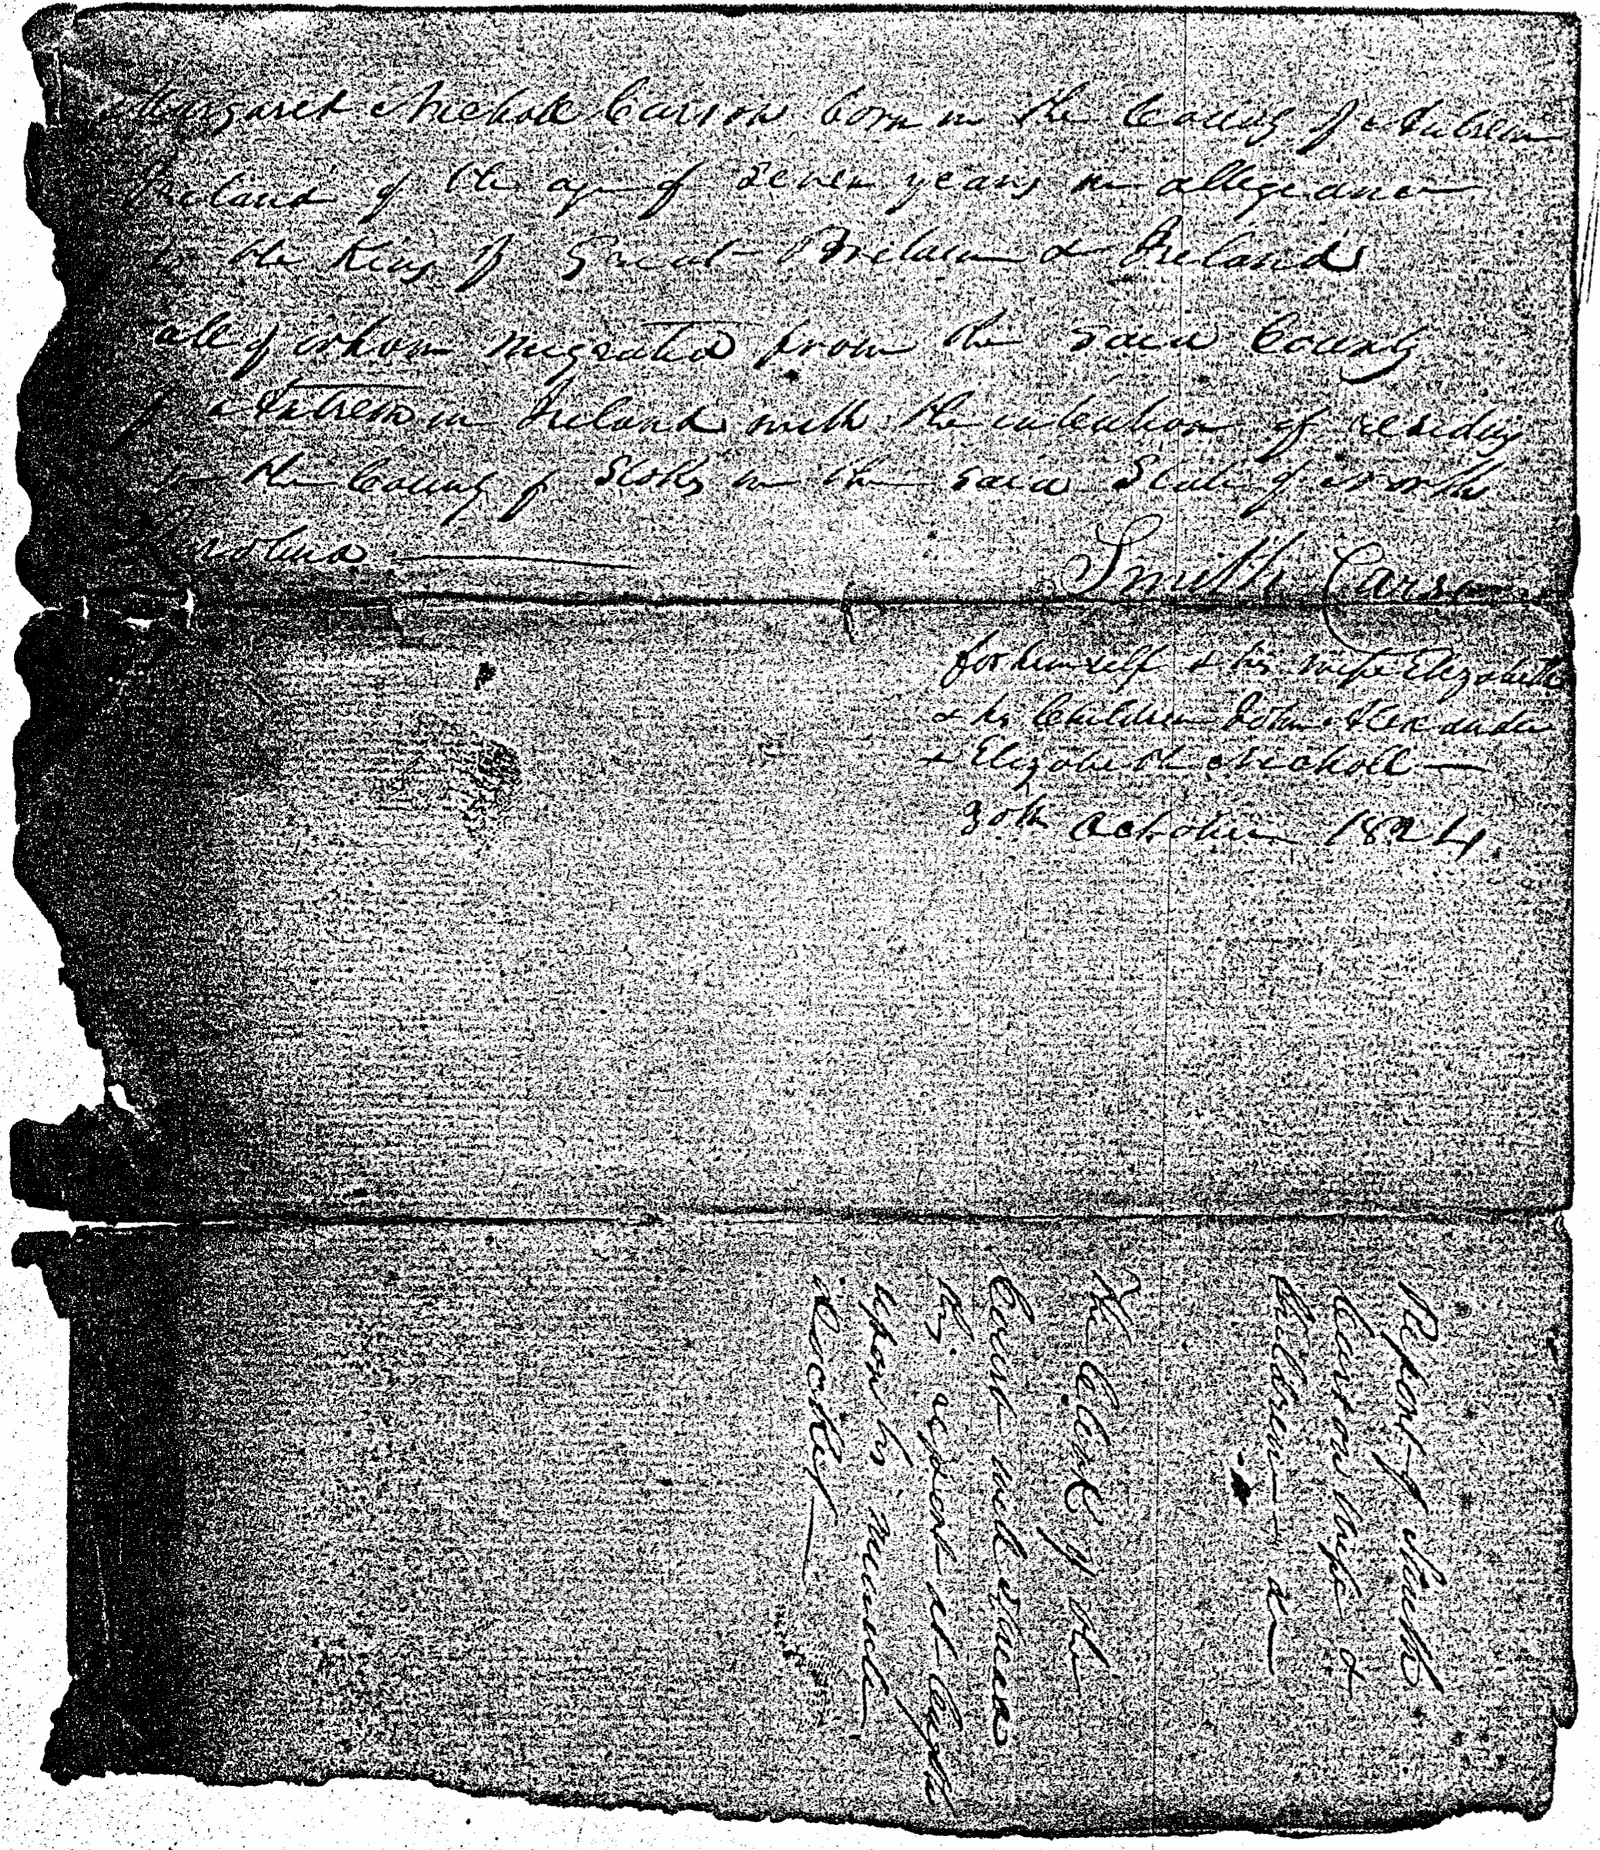 Margaret Nicholl Carson born in the County of Antrim
Ireland of the age of seven years in allegiance
to the King of Great Britain & Ireland
all of whom migrated from the said County
of Antrim in Ireland with the intention of residing
in the County of Stokes in the said State of North
Carolina
Smith Carson
for himself & his wife Elizabeth
& his Children John Alexander
& Elizabeth Nicholl
30th October 1824
Report of Smith
Carson wife &
Children
The Clerk of the
Court will
this report at length
upon his minute
docket